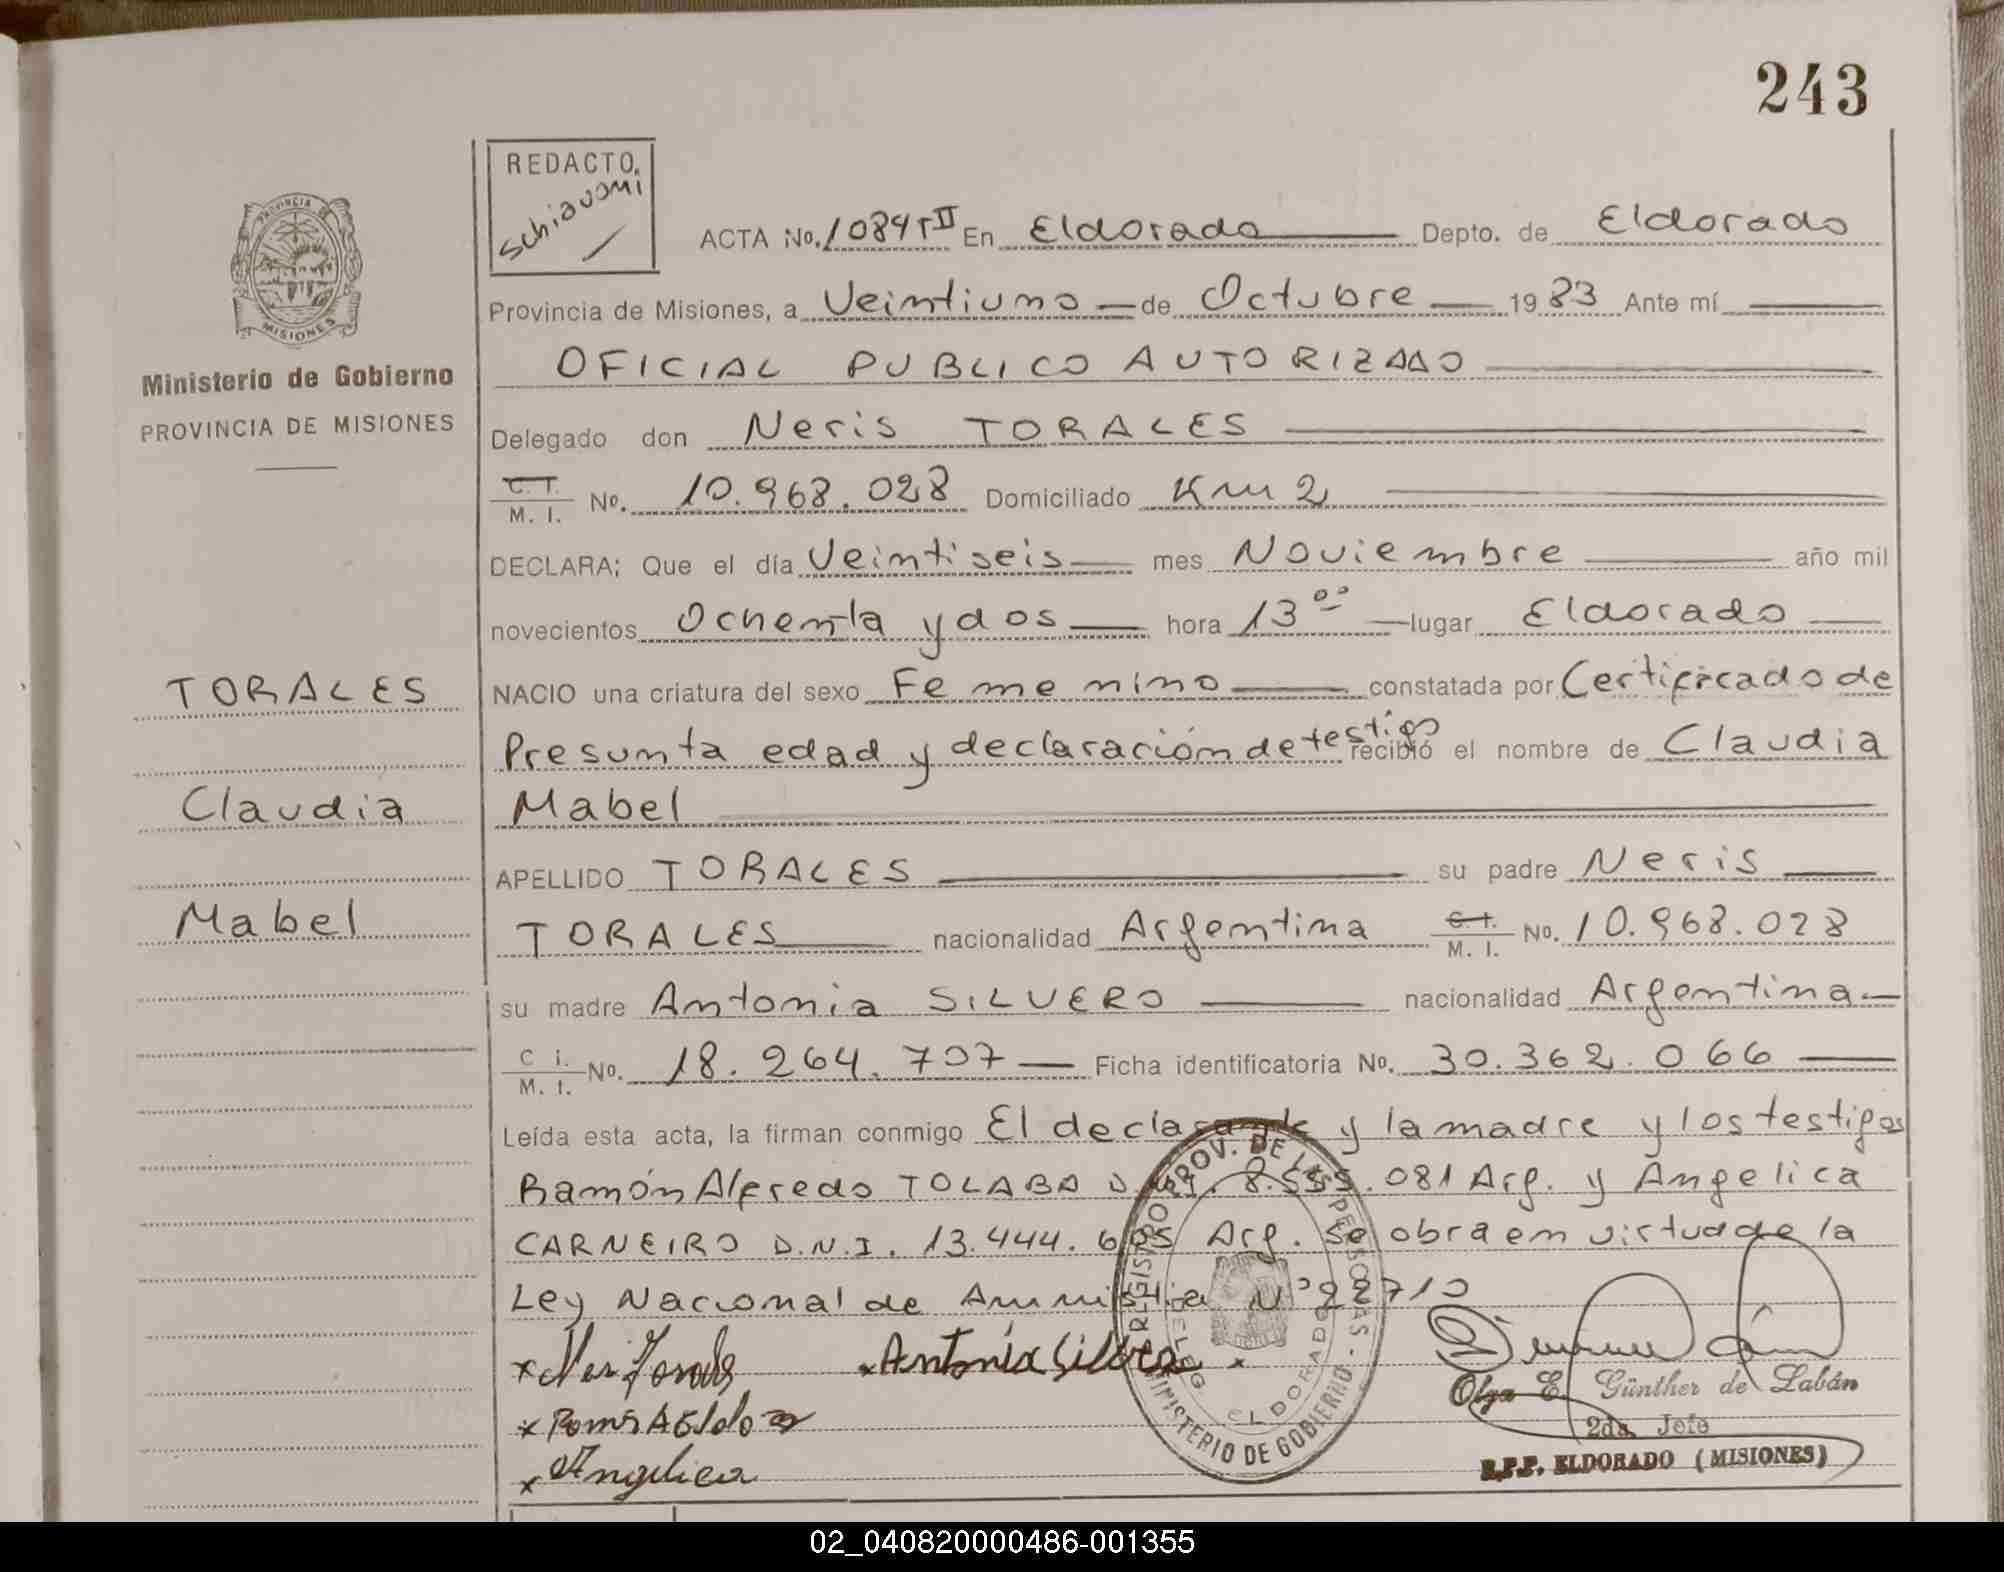 243
REDACTO.
Schiavoni
PROVINCIA DE
MISIONES
Ministerio de Gobierno
PROVINCIA DE MISIONES
ACTA No. 1084 TII En Eldorado Depto. de Eldorado
Provincia de Misiones, a Veintiuno de Octubre 1983 Ante mí
OFICIAL PUBLICO AUTORIZADO
Delegado don Neris TORALES
C. I. M. I. No. 10.968.028 Domiciliado Km 2
DECLARA; Que el día Veintiseis mes Noviembre año mil
novecientos Ochenta y dos hora 13 00 lugar Eldorado
NACIO una criatura del sexo Femenino constatada por Certificado de
Presunta edad y declaración de testigo recibió el nombre de Claudia
Mabel
APELLIDO TORALES su padre Neris
TORALES nacionalidad Argentina C. I. M. I. No. 10.968.028
su madre Antonia SILVERO nacionalidad Argentina.
C I. M. I. No. 18.264.707 Ficha identificatoria No. 30.362.066
Leída esta acta, la firman conmigo El declarante y la madre y los testigos
Ramón Alfredo TOLABA D.N.I. 8.555.081 Arg. y Angelica
CARNEIRO D.N.I. 13.444.695 Arg. Se obra en virtud de la
Ley Nacional de Amnistia Nº 22710
TORALES
Claudia
Mabel
x Antonia Silvero x
x Angelica
REGISTRO PROV. DE LAS PERSONAS - MINISTERIO DE GOBIERNO
DELEG. ELDORADO
Olga E. Günther de Labán
2da. Jefe
R.P.P. ELDORADO (MISIONES)
02_040820000486-001355